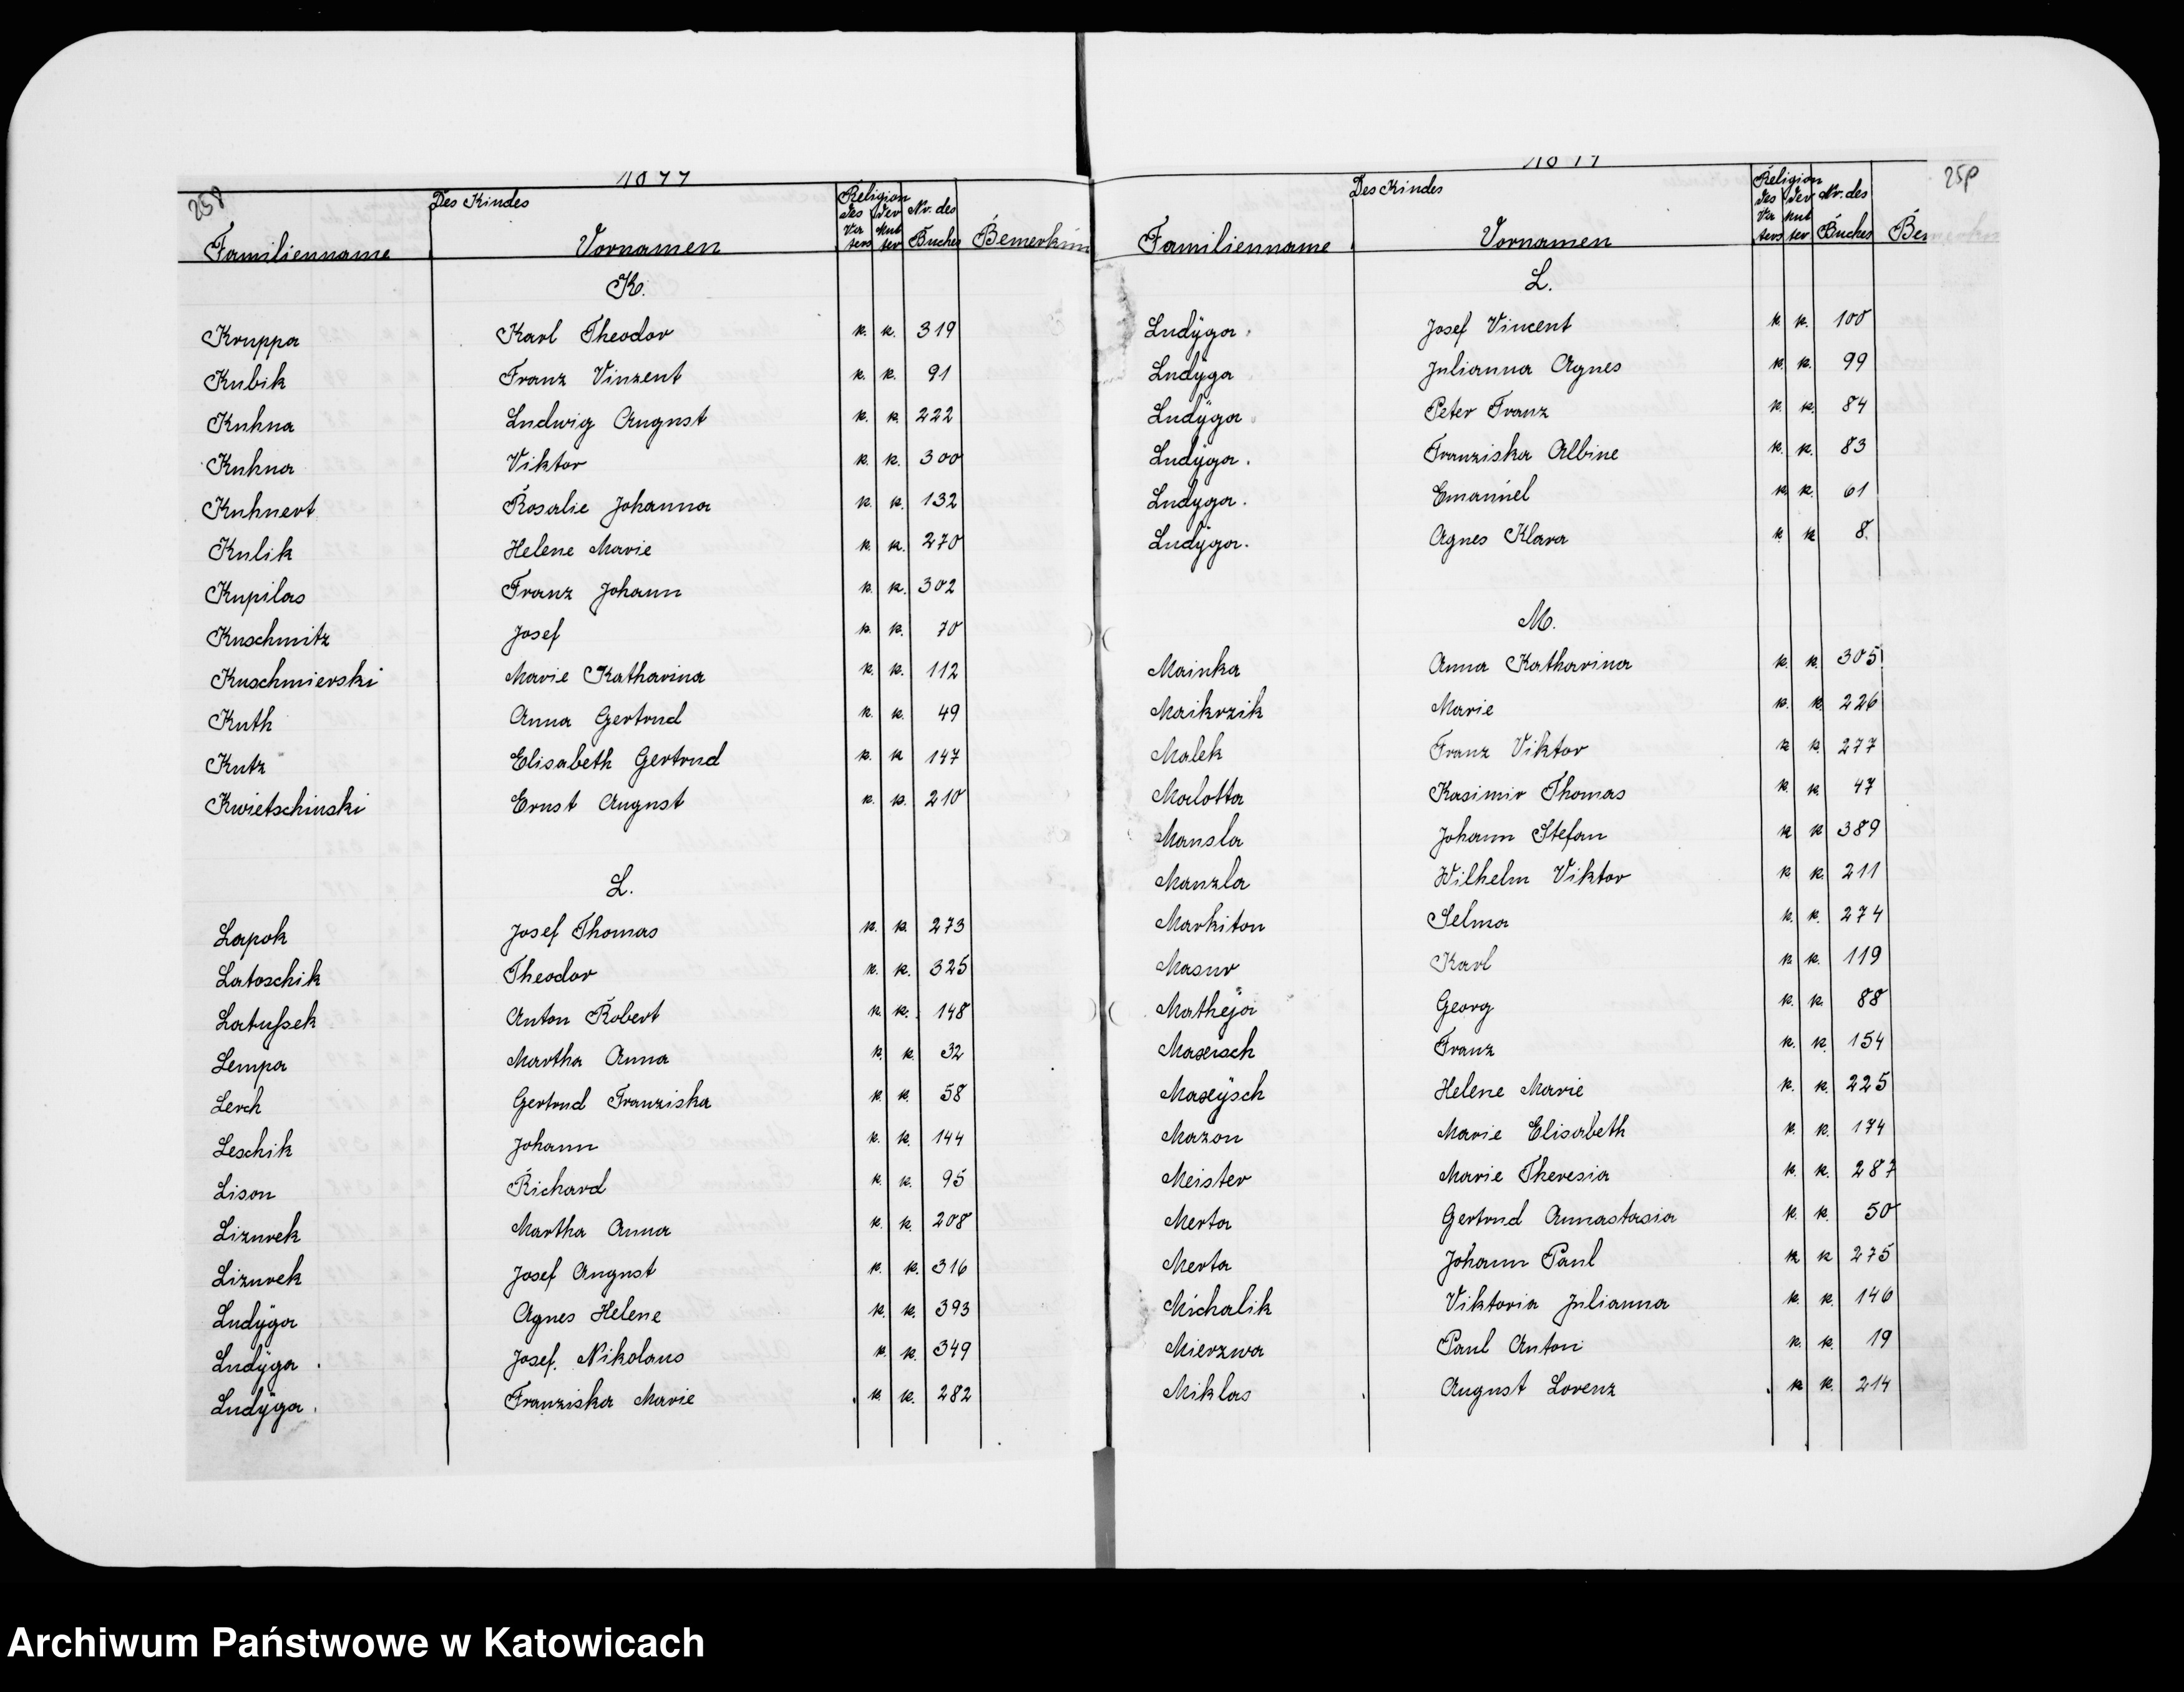 258
Des Kindes
Religion
Familienname Vornamen des Vaters der Mutter Nr. des Buches Bemerkun
K.
Kruppa Karl Theodor k. k. 319
Kubik Franz Vinzent k. k. 91
Kuhna Ludwig August k. k. 222
Kuhna Viktor k. k. 300
Kuhnert Rosalie Johanna k. k. 132
Kulik Helene Marie k. k. 270
Kupilas Franz Johann k. k. 302
Kuschmitz Josef k. k. 70
Kuschmierski Marie Katharina k. k. 112
Kuth Anna Gertrud k. k. 49
Kutz Elisabeth Gertrud k. k 147
Kwietschinski Ernst August k. k. 210
L.
Lapok Josef Thomas k. k. 273
Latoschik Theodor k. k. 325
Latußek Anton Robert k. k. 148
Lempa Martha Anna k. k. 32
Lerch Gertrud Franziska k. k. 58
Leschik Johann k. k. 144
Lison Richard k. k. 95
Lizurek Martha Anna k. k. 208
Lizurek Josef August k. k. 316
Ludÿga Agnes Helene k. k. 393
Ludÿga Josef. Nikolaus k. k. 349
Ludÿga. Franziska Marie k k. 282
Des Kindes
Religion
Familienname Vornamen des Vaters der Mutter Nr. des Buches Be
L.
Ludÿga. Josef Vincent k k. 100
Ludÿga Julianna Agnes k. k. 99
Ludÿga Peter Franz k. k. 84
Ludÿga. Franziska Albine k. k. 83
Ludÿga. Emanuel k. k. 61
Ludÿga. Agnes Klara k k 8.
M.
Mainka Anna Katharina k. k. 305
Maikrzik Marie k. k. 226
Malek Franz Viktor k k. 277
Malotta Kasimir Thomas k. k. 47
Mansla Johann Stefan k k 389
Manzla Wilhelm Viktor k k. 211
Markiton Selma k. k. 274
Masur Karl k k. 119
Matheja Georg k. k. 88
Maxeisch Franz k. k. 154
Maxeÿsch Helene Marie k. k. 225
Mazon Marie Elisabeth k. k. 174
Meister Marie Theresia k. k. 287
Merta Gertrud Annastasia k. k. 50
Merta Johann Paul k k 275
Michalik Viktoria Julianna k. k. 146
Mierzwa Paul Anton k. k. 19
Miklas August Lorenz k k. 214
Archiwum Państwowe w Katowicach